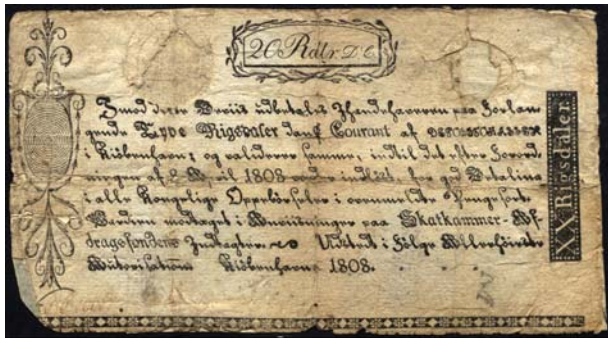 20 Rdlr. D. C.
Imod denne Beviis udbetales Ihændehaveren paa Forlan-
gende Tyve Rigsdaler dansk Courant af
i Kiöbenhavn; og validerer samme, indtil det efter Forord-
ningen af 8 April 1808 vorder indlöst, for god Betaling
i alle Kongelige Oppebörseler i ovenmeldte Pengesort.
Værdien modtaget i Anviisninger paa Skatkammer-Af-
dragsfondens Indtægter. Udstedt i Fölge Allerhöieste
Autorisation Kiöbenhavn 1808.
XX Rigsdaler